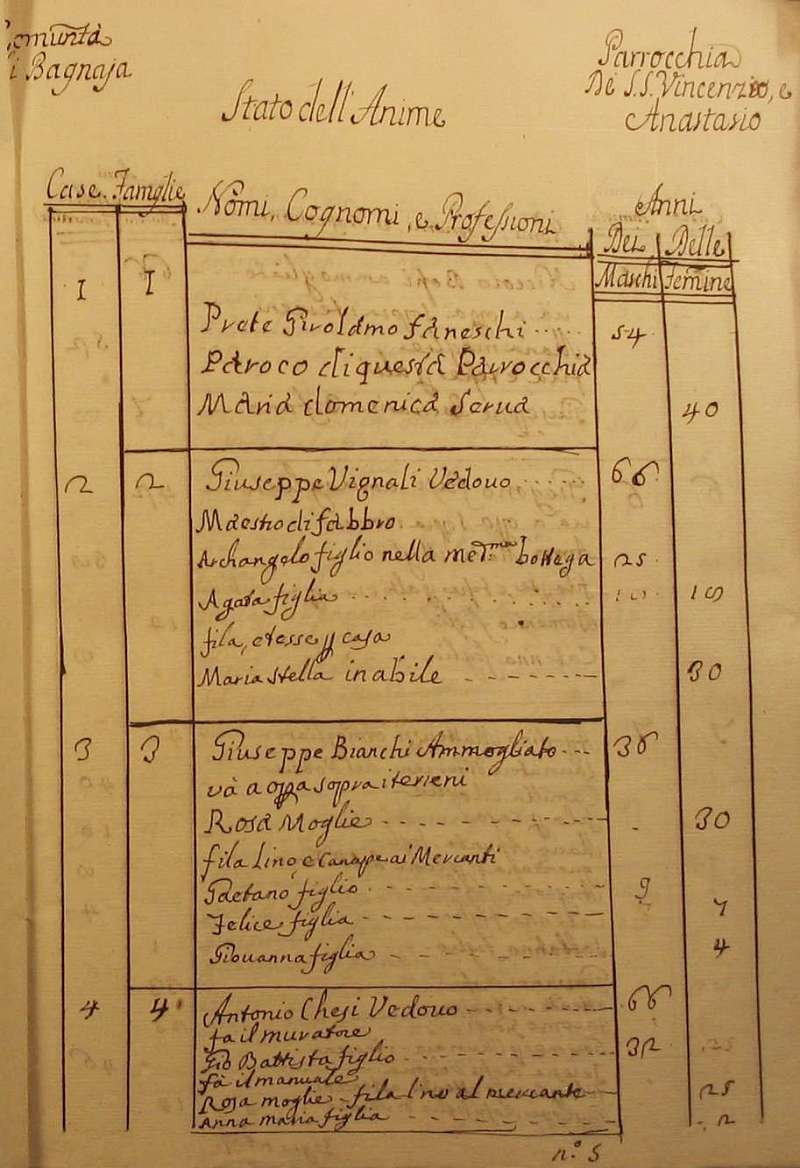 Comunità
di Bagnaja
Stato dell'Anime
Parrocchia
De S.S. Vincenzo, e
Anastasio
Case. Famglie
Nomi, Cognomi, e Professioni
Anni
Dei Delle
Maschi Femine
1 1
Prete Girolamo Faneschi 54
Paroco di questa Parrocchia
Maria domenica Serva 40
2 2 Giuseppe Vignali Vedovo 66
Maestro di fabbro
Archangelo figlio nella med.ma bottega 25
Agata figlia 19
fila, e tesse p casa
Maria Stella inabile 30
3 3 Giuseppe Bianchi Ammogliato 36
và a sopra i terreni
Rosa Moglie 30
fila Lino, e Canape ai Mercanti
Gaetano figlio 9
Felice figlia 7
Giovanna figlia 4
4 4 Antonio Chesi Vedovo 66
fa il muratore
Gio Battista figlio 32
fà il manuale
Rosa moglie fila lino al mercante 25
Anna Maria figlia 2
n.° 5